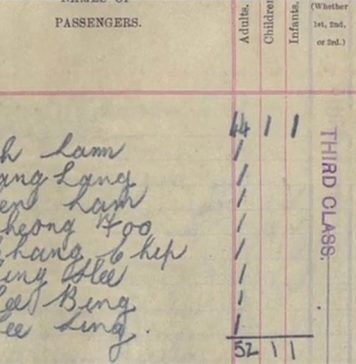 NAMES OF
PASSENGERS.
Adults.
Children
Infants.
(Whether
1st, 2nd,
or 3rd.)
44 1 1
h Lamm /
ang Lang /
Lam /
heong Foo /
hang hep /
ing /
ee Bing /
ee Ling. /
52 1 1
THIRD CLASS.